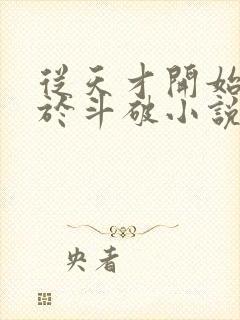 從天才開始
於斗破小說
央者